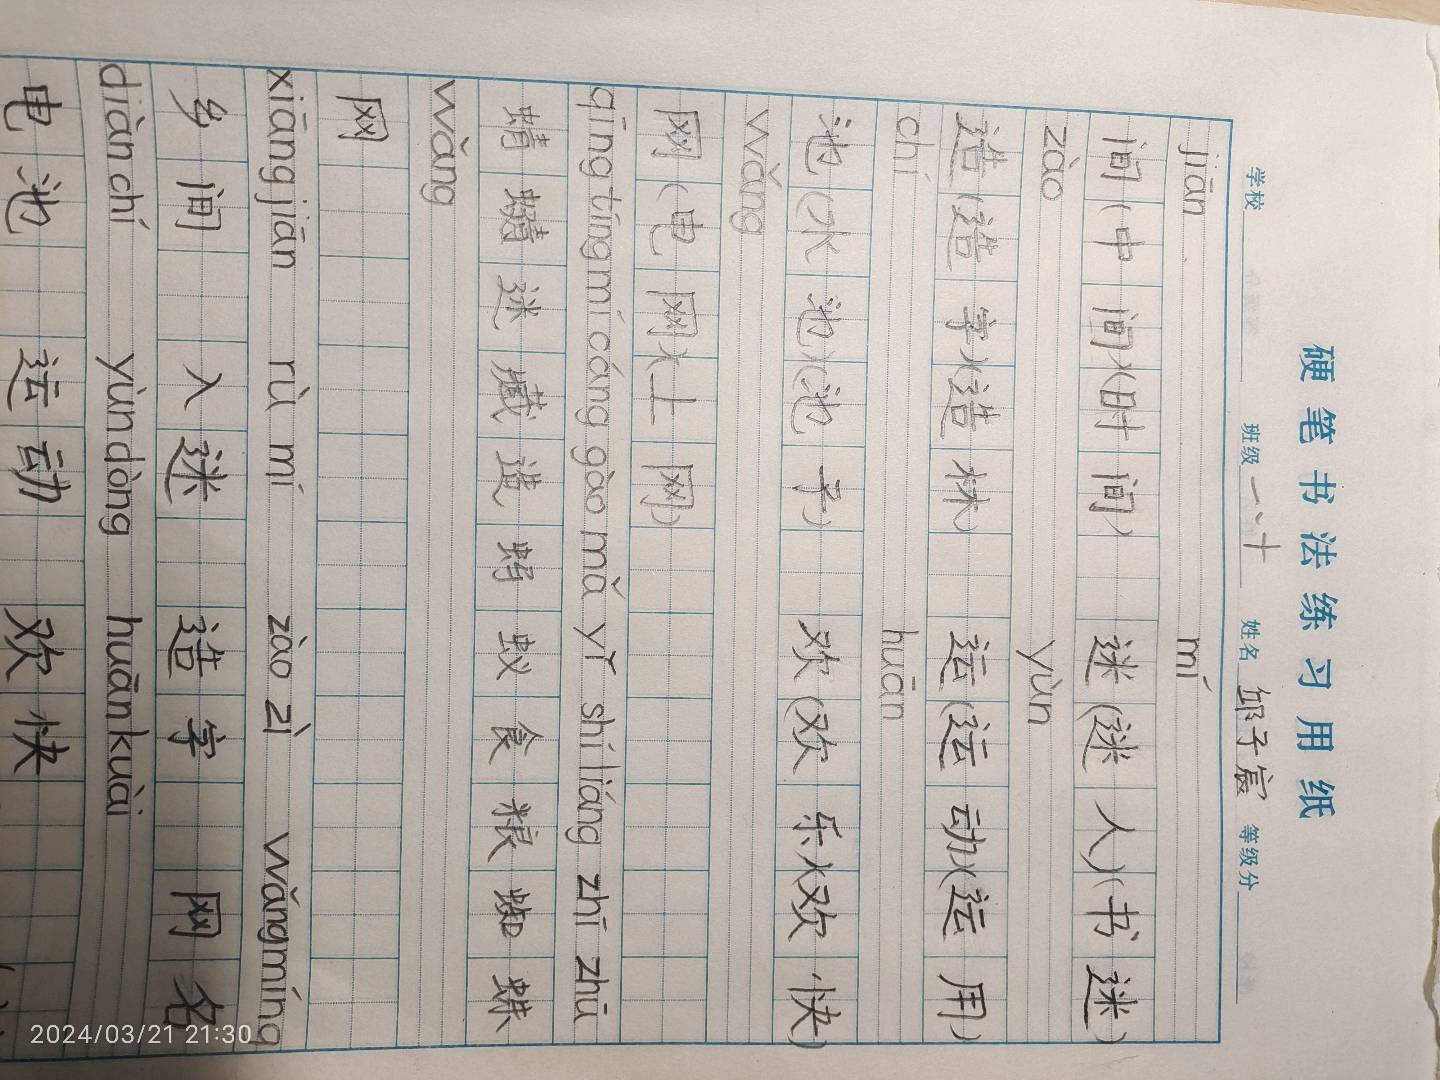 硬笔书法练习用纸
学校 班级 一、十 姓名 邱子宸 等级分
jiān mí
间(中间)(时间) 迷(迷人)(书迷)
zào yùn
造(造字)(造林) 运(运动)(运用)
chí huān
池(水池)(池子) 欢(欢乐)(欢快)
wǎng
网(电网)(上网)
qīng tíng mí cáng gào mǎ yǐ shí liáng zhī zhū
蜻 迷 造 蚂 蚁 食 粮 蜘 蛛
wǎng
网
xiāng jiān rù mí zào zì wǎng míng
乡间 入迷 造字 网名
diàn chí yùn dòng huān kuài
电池 运动 欢快
2024/03/21 21:30